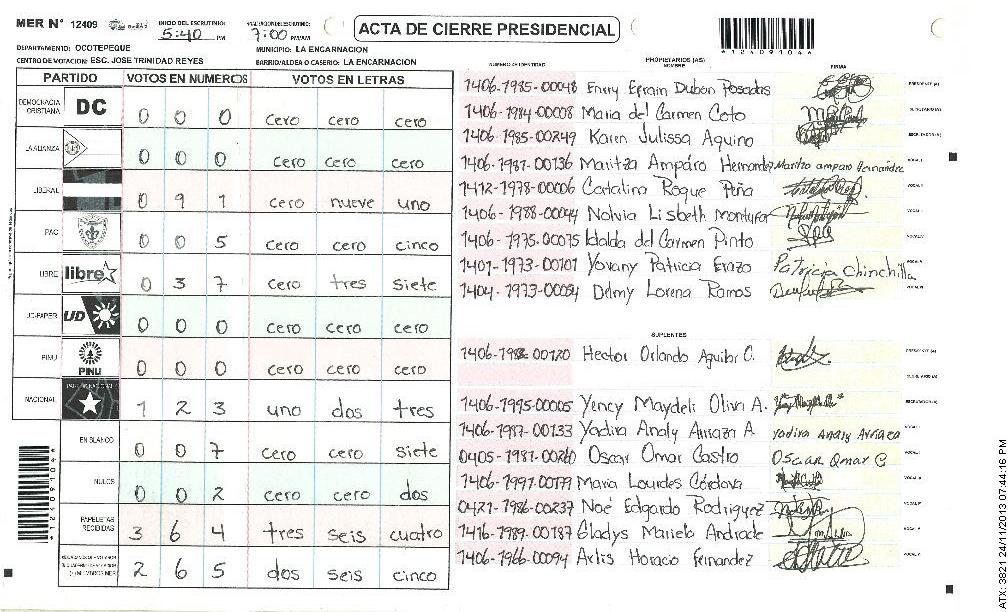 MER N° 12409
INICIO DEL ESCRUTINIO:
5:40 PM
7:00 PM/AM
ACTA DE CIERRE PRESIDENCIAL
*12409104*
DEPARTAMENTO: OCOTEPEQUE
MUNICIPIO: LA ENCARNACION
CENTRO DE VOTACION: ESC. JOSE TRINIDAD REYES
BARRIO/ALDEA O CASERIO: LA ENCARNACION
PARTIDO VOTOS EN NUMEROS VOTOS EN LETRAS
DEMOCRACIA CRISTIANA DC 0 0 0 cero cero cero
LA ALIANZA 0 0 0 cero cero cero
LIBERAL 0 9 1 cero nueve uno
PAC 0 0 5 cero cero cinco
LIBRE libre 0 3 7 cero tres siete
UD-FAPER UD 0 0 0 cero cero cero
PINU PINU 0 0 0 cero cero cero
NACIONAL 1 2 3 uno dos tres
EN BLANCO 0 0 7 cero cero siete
NULOS 0 0 2 cero cero dos
PAPELETAS RECIBIDAS 3 6 4 tres seis cuatro
2 6 5 dos seis cinco
*12409104*
NUMERO DE IDENTIDAD PROPIETARIOS (AS) NOMBRE FIRMA
1406-1985-00048 Enny Efrain Dubon Posadas PRESIDENTE (A)
1406-1984-00008 Maria del Carmen Coto SECRETARIO (A)
1406-1985-00249 Karen Julissa Aquino ESCRUTADOR (A)
1406-1981-00136 Maritza Ampáro Hernandez Maritza amparo Hernandez
1412-1978-00006 Catalina Roque Peña
1406-1988-00044 Nolvia Lisbeth Montufar
1406-1975-00075 Idalda del Carmen Pinto
1401-1973-00101 Yovany Patricia Erazo Patricia Chinchilla
1404-1973-00054 Delmy Lorena Ramos
SUPLENTES
00120 Hector Orlando Aguilar C. PRESIDENTE (A)
1406-1995-00005 Yency Maydeli Oliva A. ESCRUTADOR (A)
1406-1987-00133 Yadira Analy Arriaza A Yadira Analy Arriaza
0405-1981-00260 Oscar Omar Castro Oscar Omar C
1406-1991-00179 Maria Lourdes Córdova
0421-1986-00237 Noé Edgardo Rodriguez
1416-1989-00187 Gladys Mariela Andrade
1406-1966-00094 Arlis Horacio Fernandez
ATX: 3821 24/11/2013 07:44:16 PM